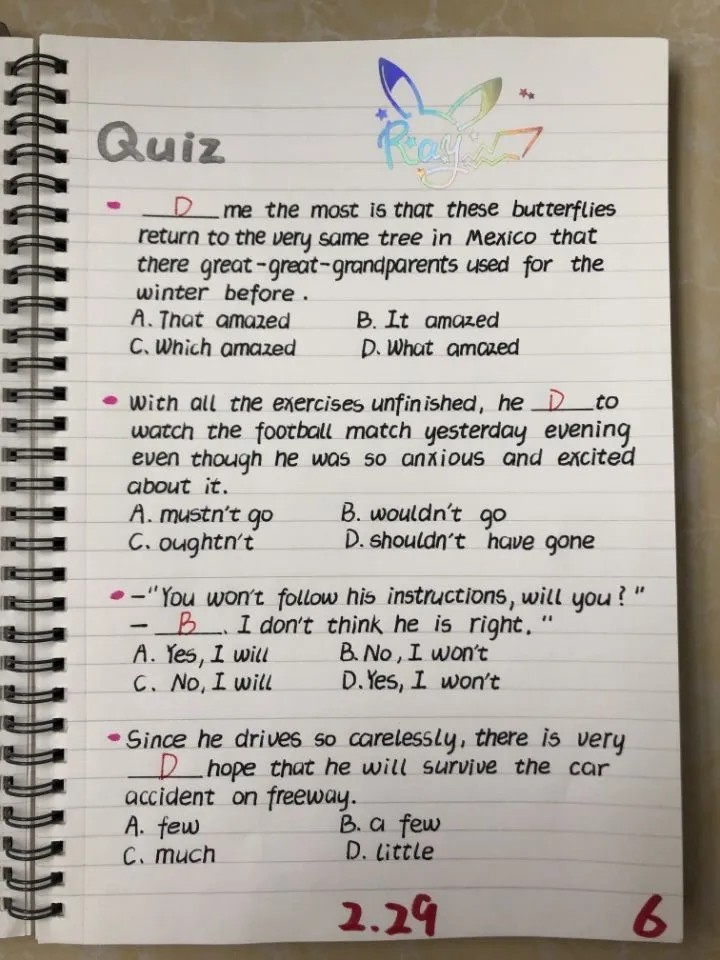 Ray
Quiz
D me the most is that these butterflies
return to the very same tree in Mexico that
there great-great-grandparents used for the
winter before.
A. That amazed B. It amazed
C. Which amazed D. What amazed
With all the exercises unfinished, he D to
watch the football match yesterday evening
even though he was so anxious and excited
about it.
A. mustn't go B. wouldn't go
C. oughtn't D. shouldn't have gone
-"You won't follow his instructions, will you?"
- B. I don't think he is right."
A. Yes, I will B. No, I won't
C. No, I will D. Yes, I won't
Since he drives so carelessly, there is very
D hope that he will survive the car
accident on freeway.
A. few B. a few
C. much D. little
2.29 6